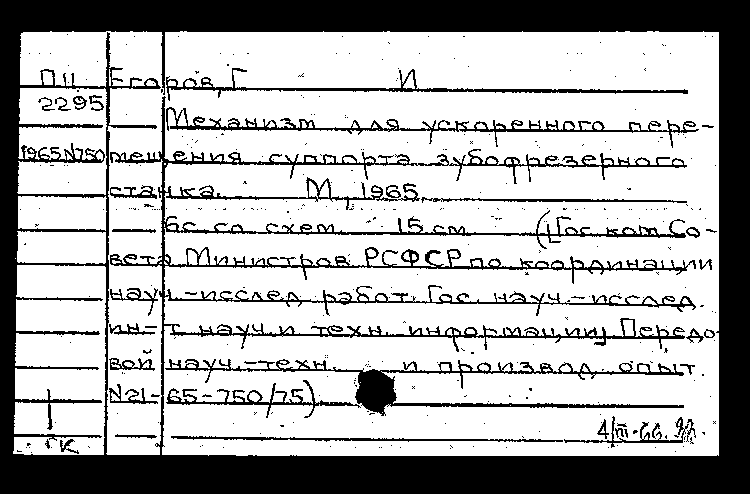 П11 Егоров, Г И
2295
Механизм для ускоренного пере-
1965N750 мещения суппорта зубофрезерного
станка. М., 1965.
6с. со схем. 15 см. ([Гос. ком. Со-
вета Министров РСФСР по координации
науч.-исслед. работ. Гос. науч.-исслед.
ин-т науч. и техн. информации]. Передо-
вой науч.-техн. и производ. опыт.
N21-65-750/75)
4/III-66.
ГК